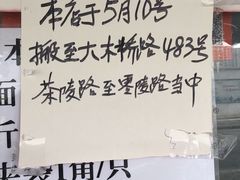 本店于5月10号
搬至大木桥路483号
茶陵路至零陵路当中
本
面
斤
1角/只